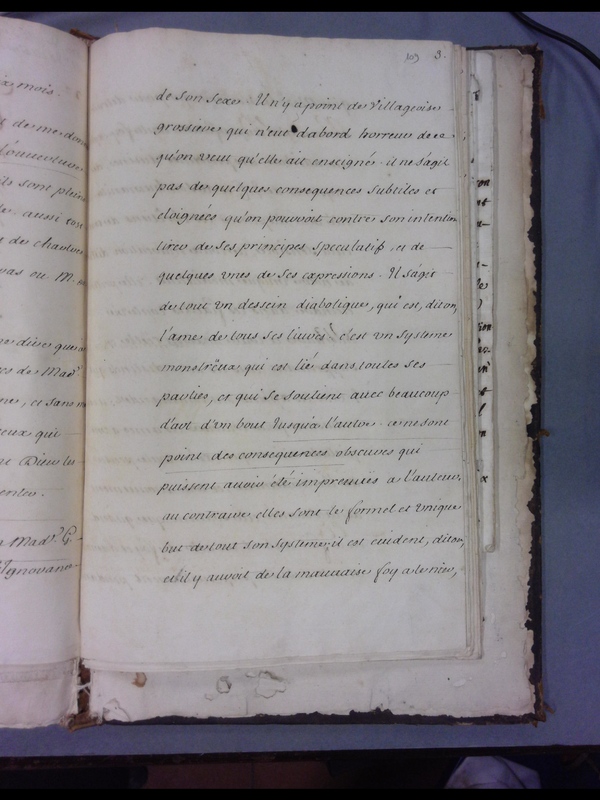 ix mois.
t de me don
ils sont plein
de. aussi tou
pas ou M.
me dire que
es de Mad.
ne, et sans
ceux qui
nt Dieu les
entes.
a Mad.e G.
l'Ignorance
109 3.
de son sexe. Il n'y a point de villageoise
grossiere qui n'eut d'abord horreur de ce
qu'on veut qu'elle ait enseigné. il ne s'agit
pas de quelques consequences subtiles et
eloignées qu'on pouvoit contre son intention
tirer de ses principes speculatifs, et de
quelques unes de ses expressions. Il s'agit
de tout un dessein diabolique, qui est, dit on,
l'ame de tous ses livres. c'est un systeme
monstrueux qui est lié dans toutes ses
parties, et qui se soutient avec beaucoup
d'art d'un bout jusqu'a l'autre. ce ne sont
point des consequences obscures qui
puissent avoir été impreveües a l'auteur,
au contraire elles sont le formel et unique
but de tout son systeme; il est evident, dit on,
et il y auroit de la mauvaise foy a le nier,